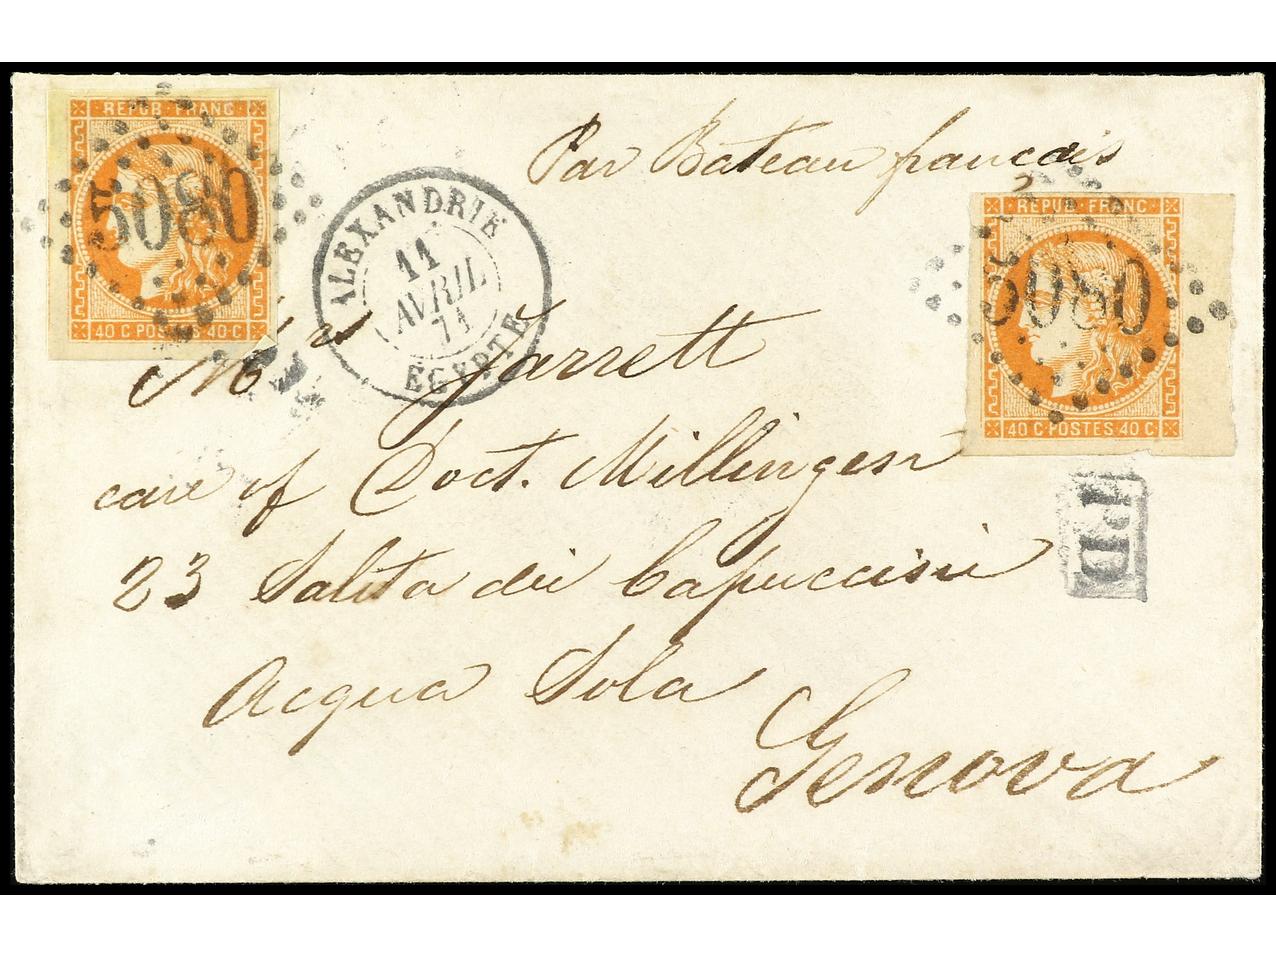 REPUB·FRANC
5080
40 C·POSTES·40·C
ALEXANDRIE
11
AVRIL
71
ÉGYPTE
Par Bateau français
REPUB·FRANC
5080
40 C·POSTES 40 C
PD
Mrs Jarrett
care of Doct. Millingen
23 Salita dei Capuccini
Acqua Sola
Genova